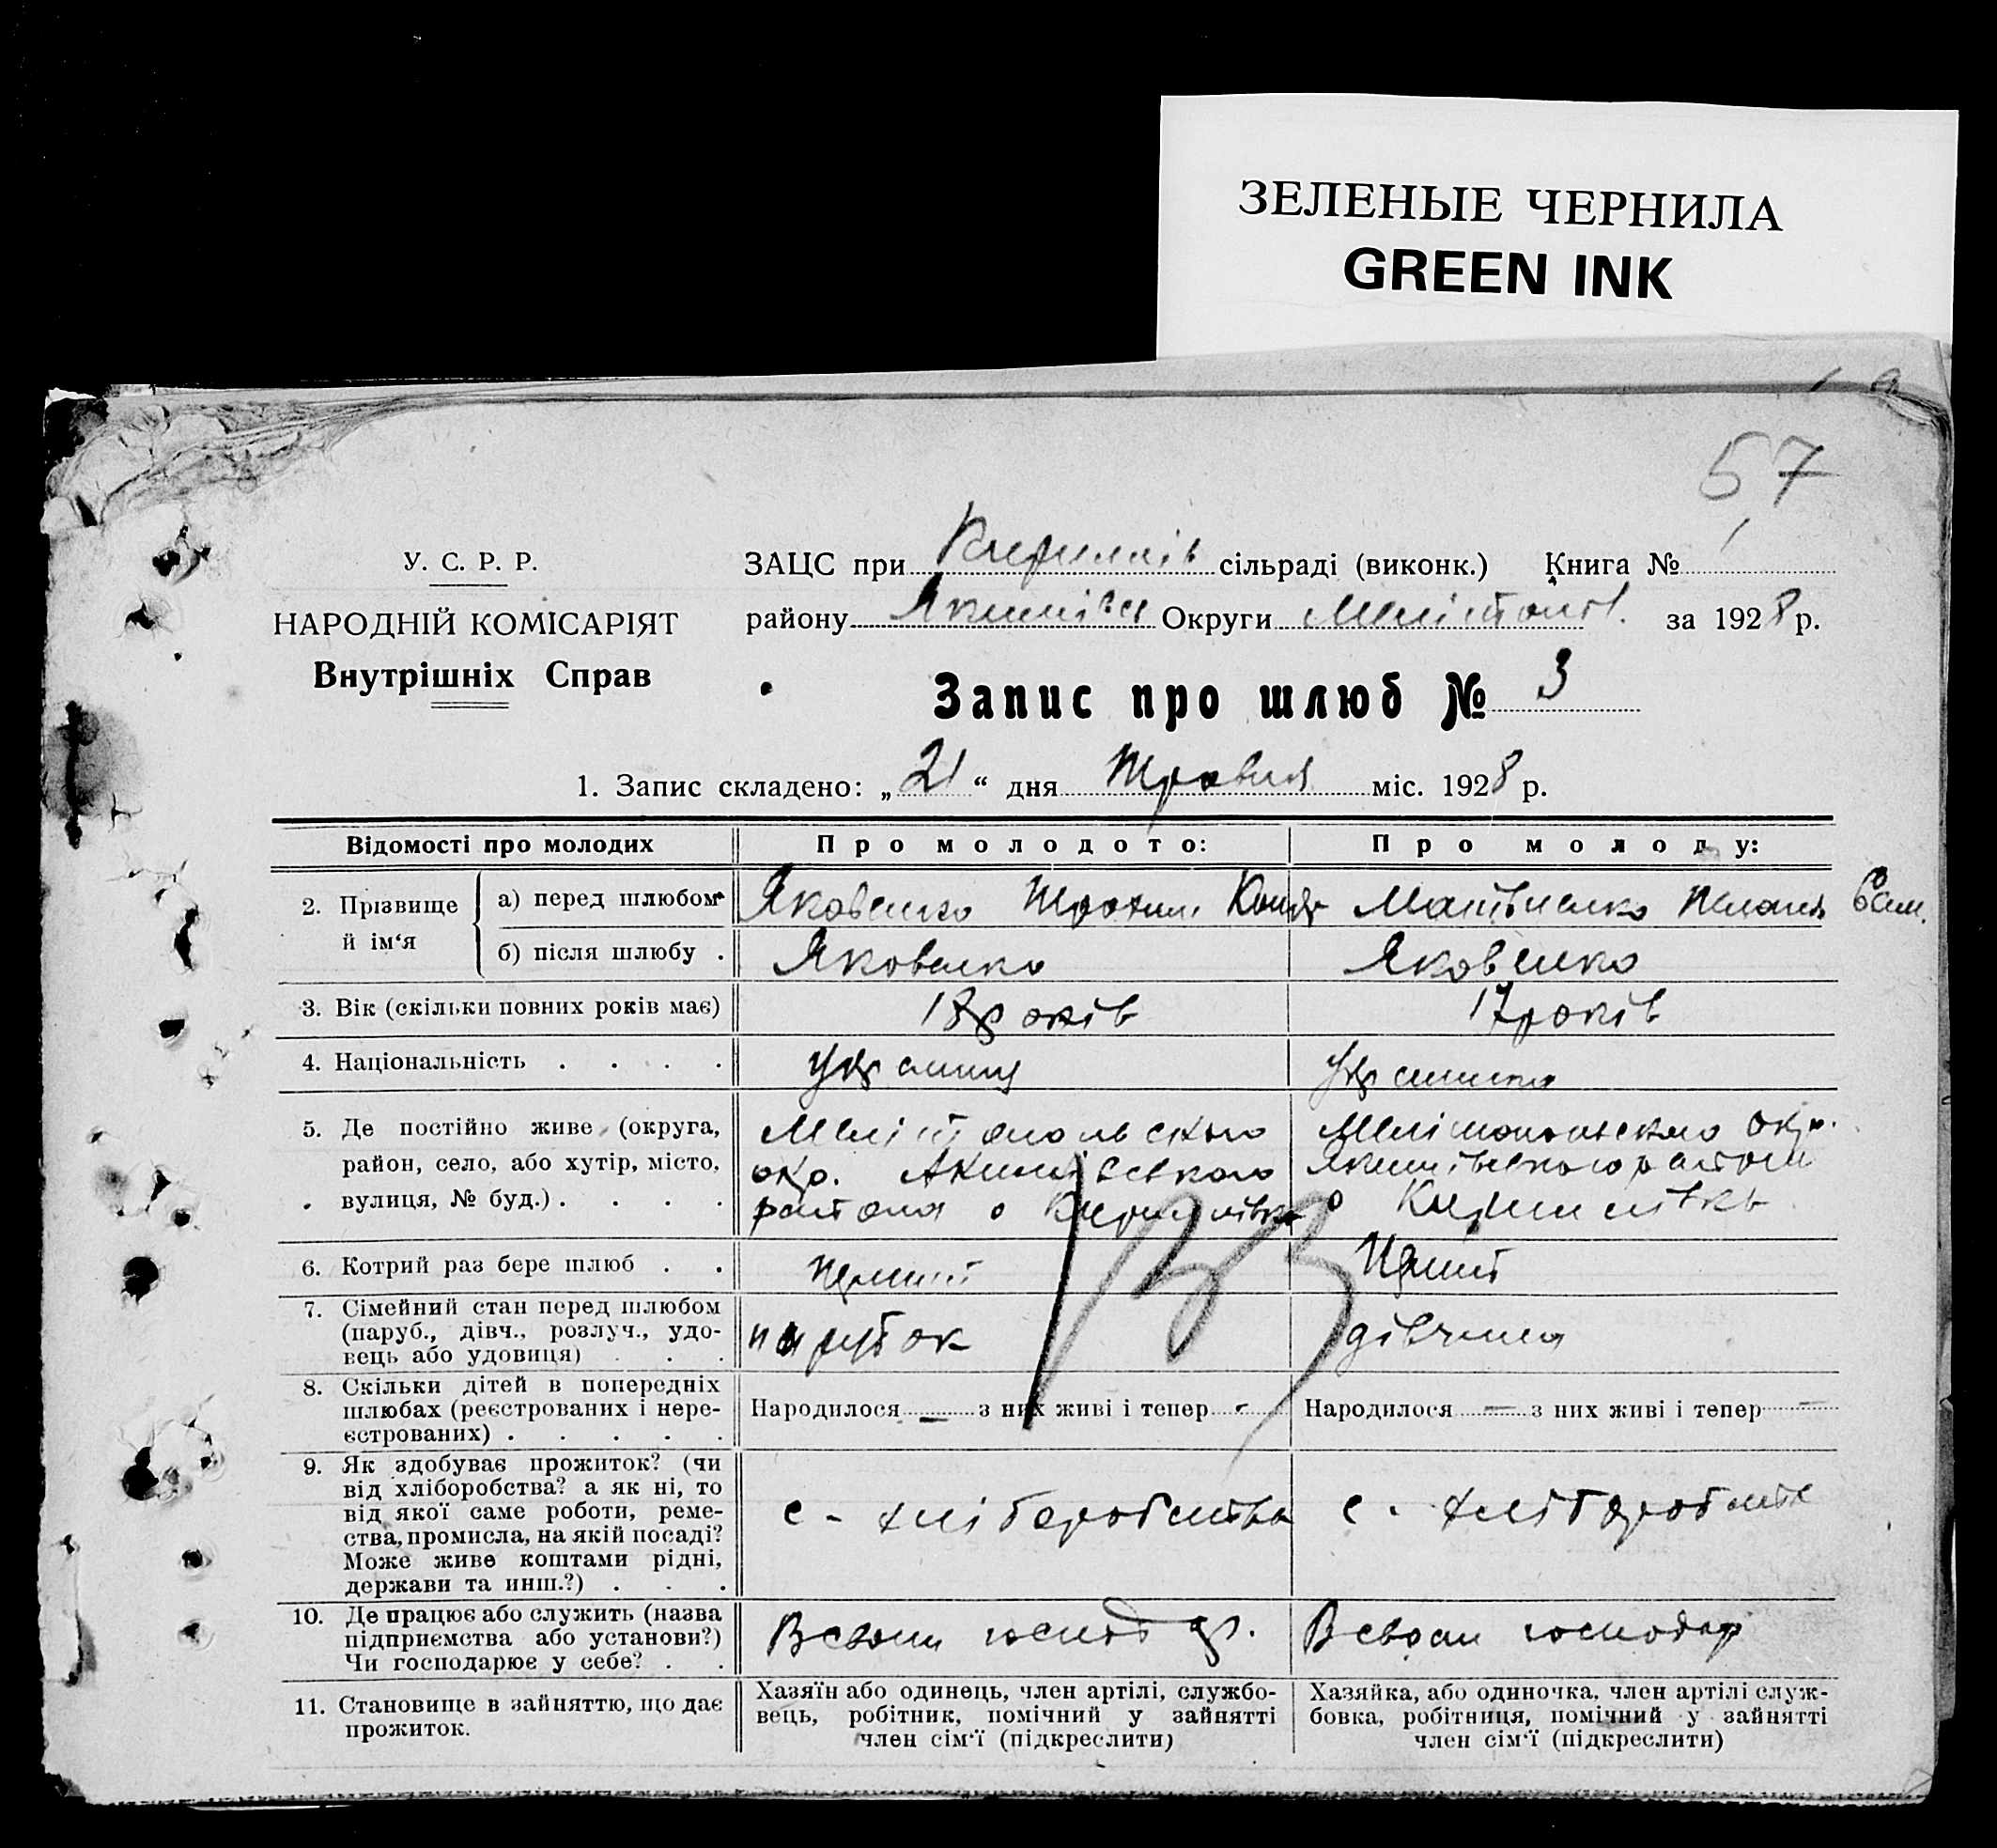 ЗЕЛЕНЫЕ ЧЕРНИЛА
GREEN INK
57
У. С. Р. Р.
НАРОДНІЙ КОМІСАРІЯТ
Внутрішніх Справ
ЗАЦС при Кирилів сільраді (виконк.) Книга № 1
району Якимівськ Округи Мелітопол. за 1928 р.
Запис про шлюб № 3
1. Запис складено: „21“ дня Травня міс. 1928 р.
Відомості про молодих Про молодого: Про молоду:
2. Прізвище й ім‘я
а) перед шлюбом Яковенко Трохим Матвієнко
б) після шлюбу . Яковенко Яковенко
3. Вік (скільки повних років має) 18 років 17 років
4. Національність . . . . українец українка
5. Де постійно живе (округа, район, село, або хутір, місто, вулиця, № буд.) . . . .
Мелітопольского
окр. Акимівського
района с Кирилівка
Мелітопольского окр.
Якимівського района
с Кирилівка
133
6. Котрий раз бере шлюб . . Перший Перший
7. Сімейний стан перед шлюбом
(паруб., дівч., розлуч., удо-
вець або удовиця) . . . парубок дівчина
8. Скільки дітей в попередніх
шлюбах (реєстрованих і нере-
єстрованих) . . . . .
Народилося — з них живі і тепер - Народилося — з них живі і тепер —
9. Як здобуває прожиток? (чи
від хліборобства? а як ні, то
від якої саме роботи, реме-
ства, промисла, на якій посаді?
Може живе коштами рідні,
держави та инш.?) . . .
с - хліборобства с - хлібороб
10. Де працює або служить (назва
підприємства або установи?)
Чи господарює у себе? . .
В своєм господар. В своєм господар
11. Становище в зайняттю, що дає
прожиток.
Хазяїн або одинець, член артілі, службо-
вець, робітник, помічний у зайнятті
член сім‘ї (підкреслити)
Хазяйка, або одиночка, член артілі служ-
бовка, робітниця, помічний у зайнятті
член сім‘ї (підкреслити)